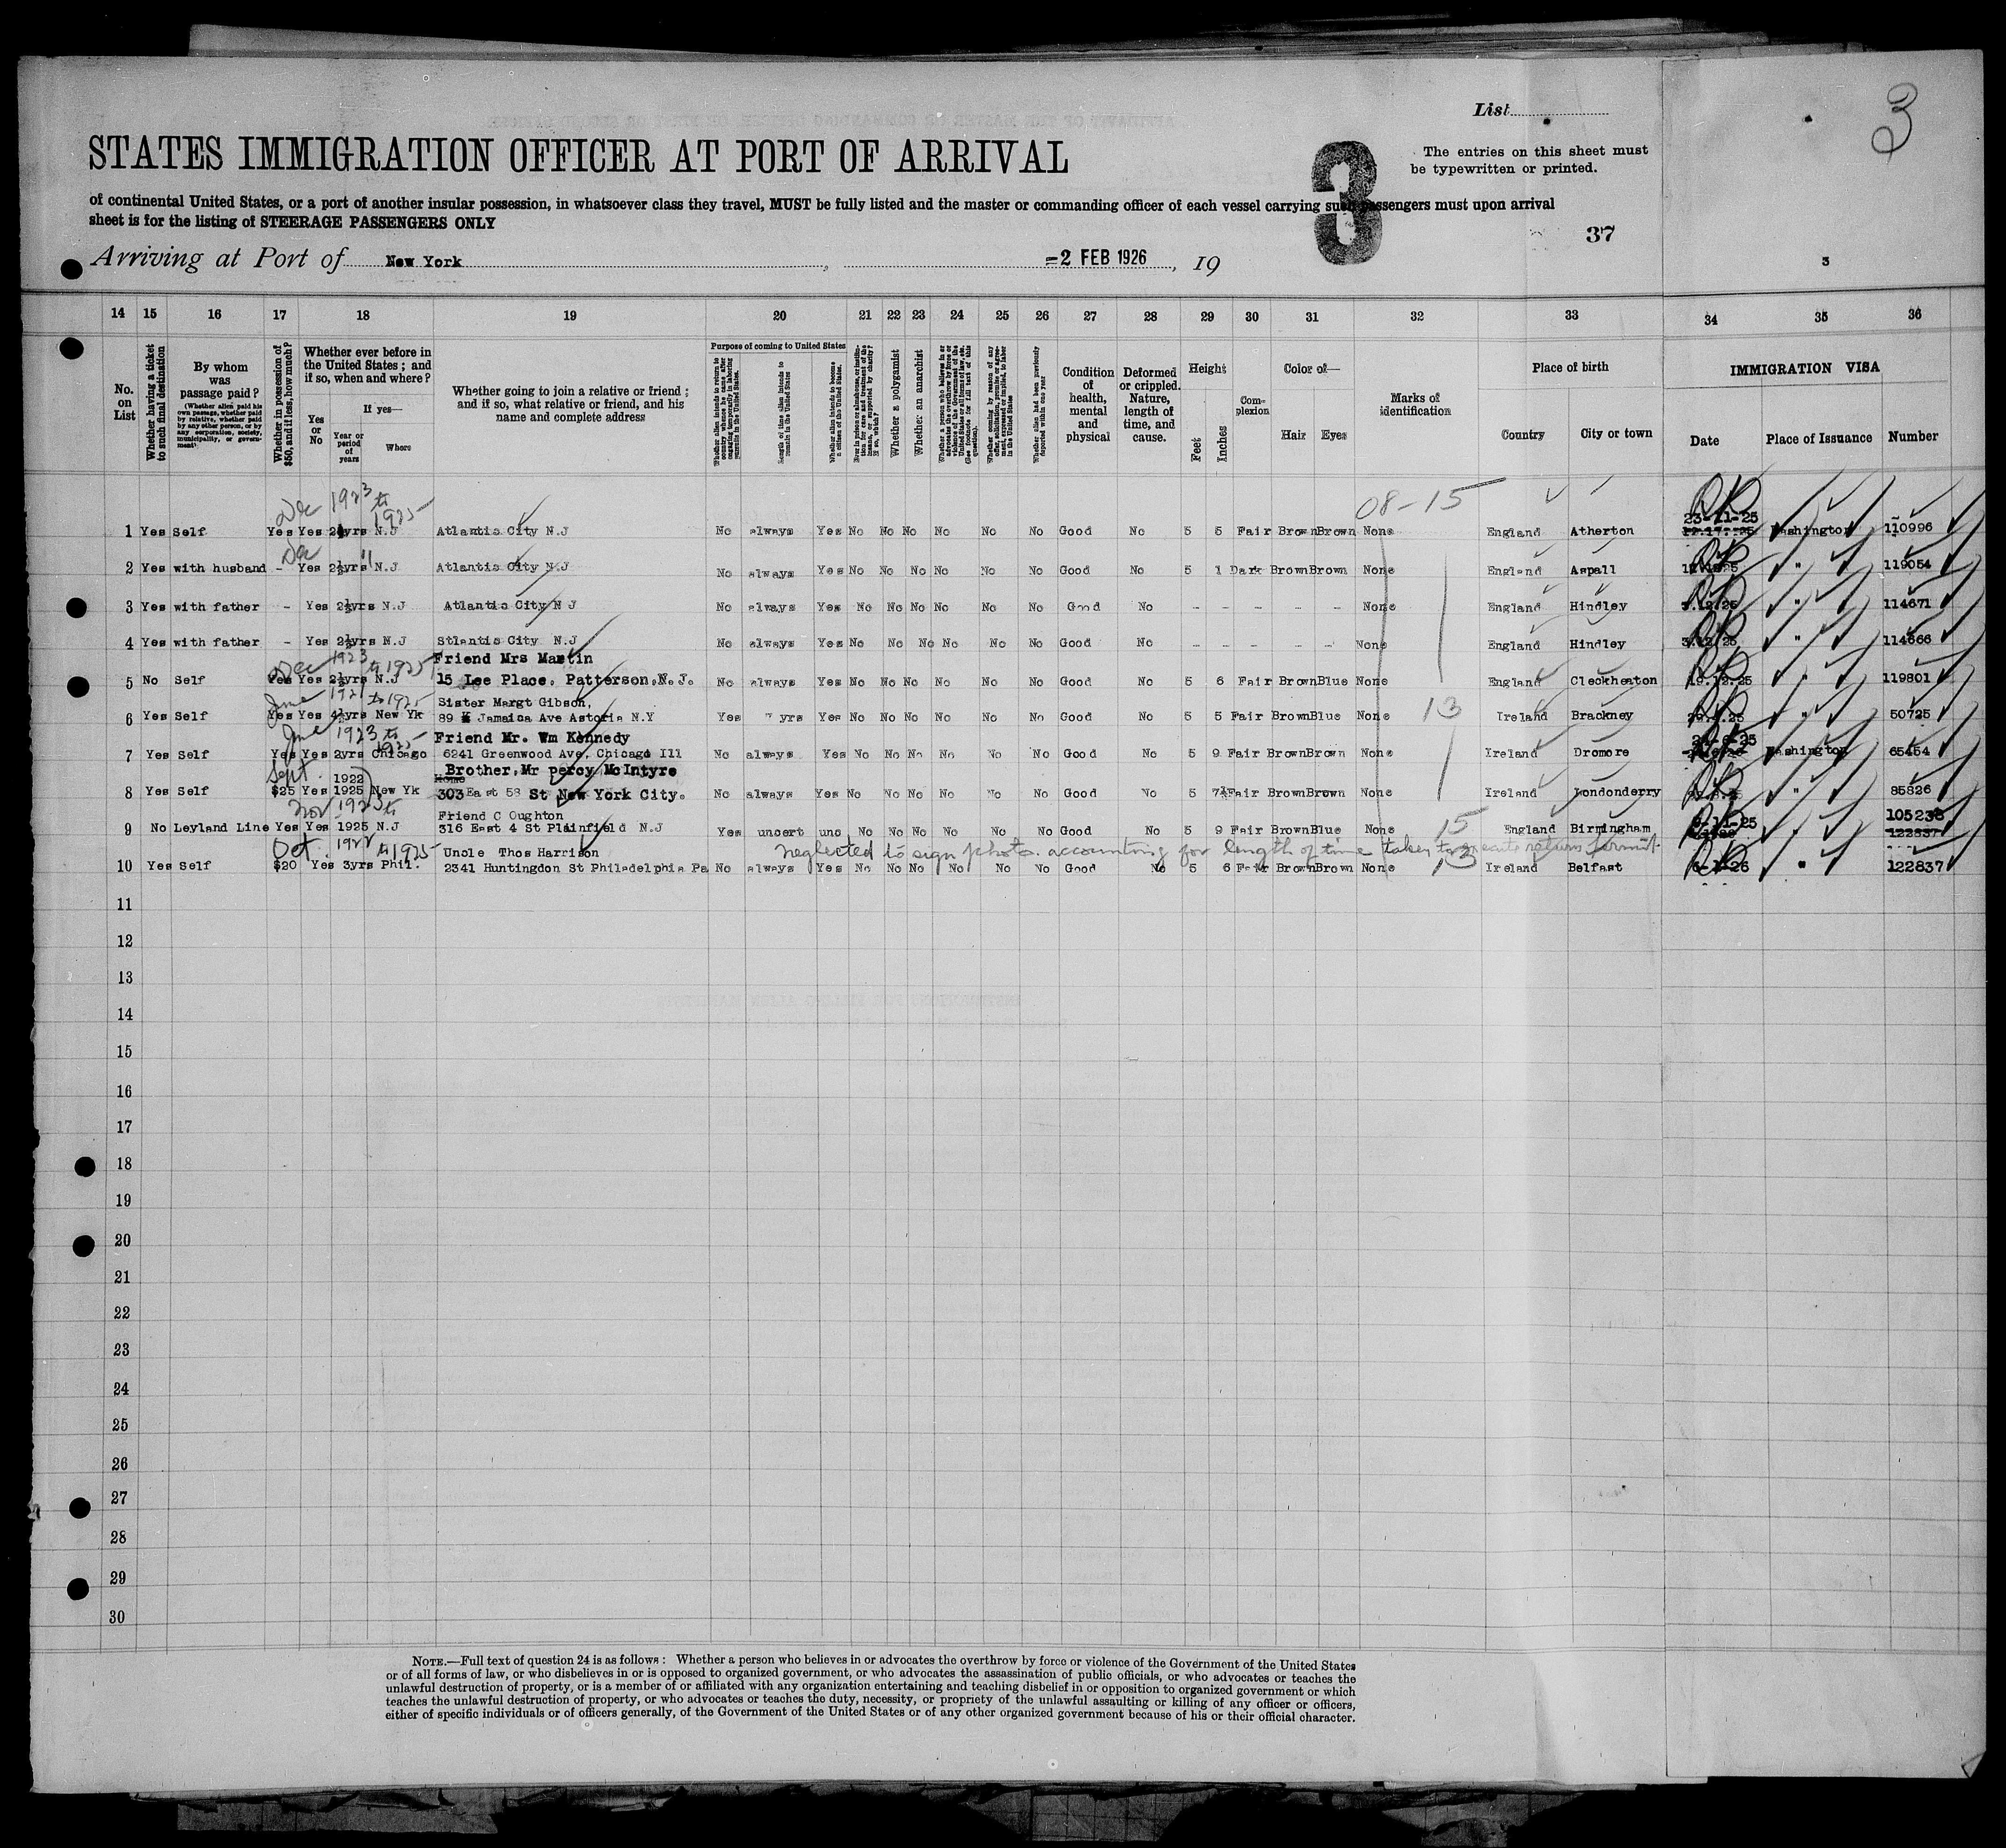 List
3
STATES IMMIGRATION OFFICER AT PORT OF ARRIVAL
3
The entries on this sheet must
be typewritten or printed.
of continental United States, or a port of another insular possession, in whatsoever class they travel, MUST be fully listed and the master or commanding officer of each vessel carrying such passengers must upon arrival
sheet is for the listing of STEERAGE PASSENGERS ONLY
37
Arriving at Port of New York, -2 FEB 1926, 19
3
14 15 16 17 18 19 20 21 22 23 24 25 26 27 28 29 30 31 32 33 34 35 36
No. on List
Whether having a ticket to such final destination
By whom was passage paid?
(Whether alien paid his own passage, whether paid by relative, whether paid by any other person, or by any corporation, society, municipality, or government)
Whether in possession of $50, and if less, how much?
Whether ever before in the United States; and if so, when and where?
Yes or No
If yes—
Year or period of years
Where
Whether going to join a relative or friend; and if so, what relative or friend, and his name and complete address
Purpose of coming to United States
Whether alien intends to return to country whence he came after engaging temporarily in laboring pursuits in the United States.
Length of time alien intends to remain in the United States
Whether alien intends to become a citizen of the United States.
Whether a polygamist
Whether an anarchist
Condition of health, mental and physical
Deformed or crippled. Nature, length of time, and cause.
Height
Feet Inches
Complexion
Color of—
Hair Eyes
Marks of identification
Place of birth
Country City or town
IMMIGRATION VISA
Date Place of Issuance Number
Dec 1923 to 1925
08-15
23-11-25
1 Yes Self Yes Yes yrs N.J Atlantic City N.J No always Yes No No No No No No Good No 5 5 Fair Brown Brown None England Atherton Washington 110996
Dec "
2 Yes with husband - Yes 2½yrs N.J Atlantic City N.J No always Yes No No No No No No Good No 5 1 Dark Brown Brown None England Aspall " 119054
3 Yes with father - Yes 2½yrs N.J Atlantic City N J No always Yes No No No No No No Good No - - - - - None England Hindley 3.12.25 " 114671
4 Yes with father - Yes 2½yrs N.J Stlantic City N.J No always Yes No No No No No No Good No - - - - - None England Hindley 3.12.25 " 114666
Dec 1923 to 1925 Friend Mrs Martin
5 No Self Yes Yes 2½yrs N.J 15 Lee Place. Patterson, N.J. No always Yes No No No No No No Good No 5 6 Fair Brown Blue None England Cleckheaton 19.12.25 " 119801
June 1921 to 1925 Sister Margt Gibson,
6 Yes Self Yes Yes 4½yrs New Yk 89 Jamaica Ave Astoria N.Y Yes yrs Yes No No No No No No Good No 5 5 Fair Brown Blue None 13 Ireland Brackney " 50725
June 1923 to 1925 Friend Mr. Wm Kennedy
7 Yes Self Yes Yes 2yrs Chicago 6241 Greenwood Ave. Chicago Ill No always Yes No No No No No No Good No 5 9 Fair Brown Brown None Ireland Dromore Washington 65454
Sept. 1922 Brother, Mr percy McIntyre
Home
8 Yes Self $25 Yes 1925 New Yk 303 East 58 St New York City. No always Yes No No No No No No Good No 5 7½ Fair Brown Brown None Ireland Londonderry " 85826
Nov 1923 to Friend C Oughton 105238
9 No Leyland Line Yes Yes 1925 N.J 316 East 4 St Plainfield N.J Yes uncert unc No No No No No No Good No 5 9 Fair Brown Blue None 15 England Birmingham " 122837
neglected to sign photo. accounting for length of time taken to execute return permit.
Oct. 1922 to 1925 Uncle Thos Harrison
10 Yes Self $20 Yes 3yrs Phil. 2341 Huntingdon St Philadelphia Pa No always Yes No No No No No No Good No 5 6 Fair Brown Brown None 13 Ireland Belfast " 122837
11
12
13
14
15
16
17
18
19
20
21
22
23
24
25
26
27
28
29
30
NOTE.—Full text of question 24 is as follows: Whether a person who believes in or advocates the overthrow by force or violence of the Government of the United States
or of all forms of law, or who disbelieves in or is opposed to organized government, or who advocates the assassination of public officials, or who advocates or teaches the
unlawful destruction of property, or is a member of or affiliated with any organization entertaining and teaching disbelief in or opposition to organized government or which
teaches the unlawful destruction of property, or who advocates or teaches the duty, necessity, or propriety of the unlawful assaulting or killing of any officer or officers,
either of specific individuals or of officers generally, of the Government of the United States or of any other organized government because of his or their official character.